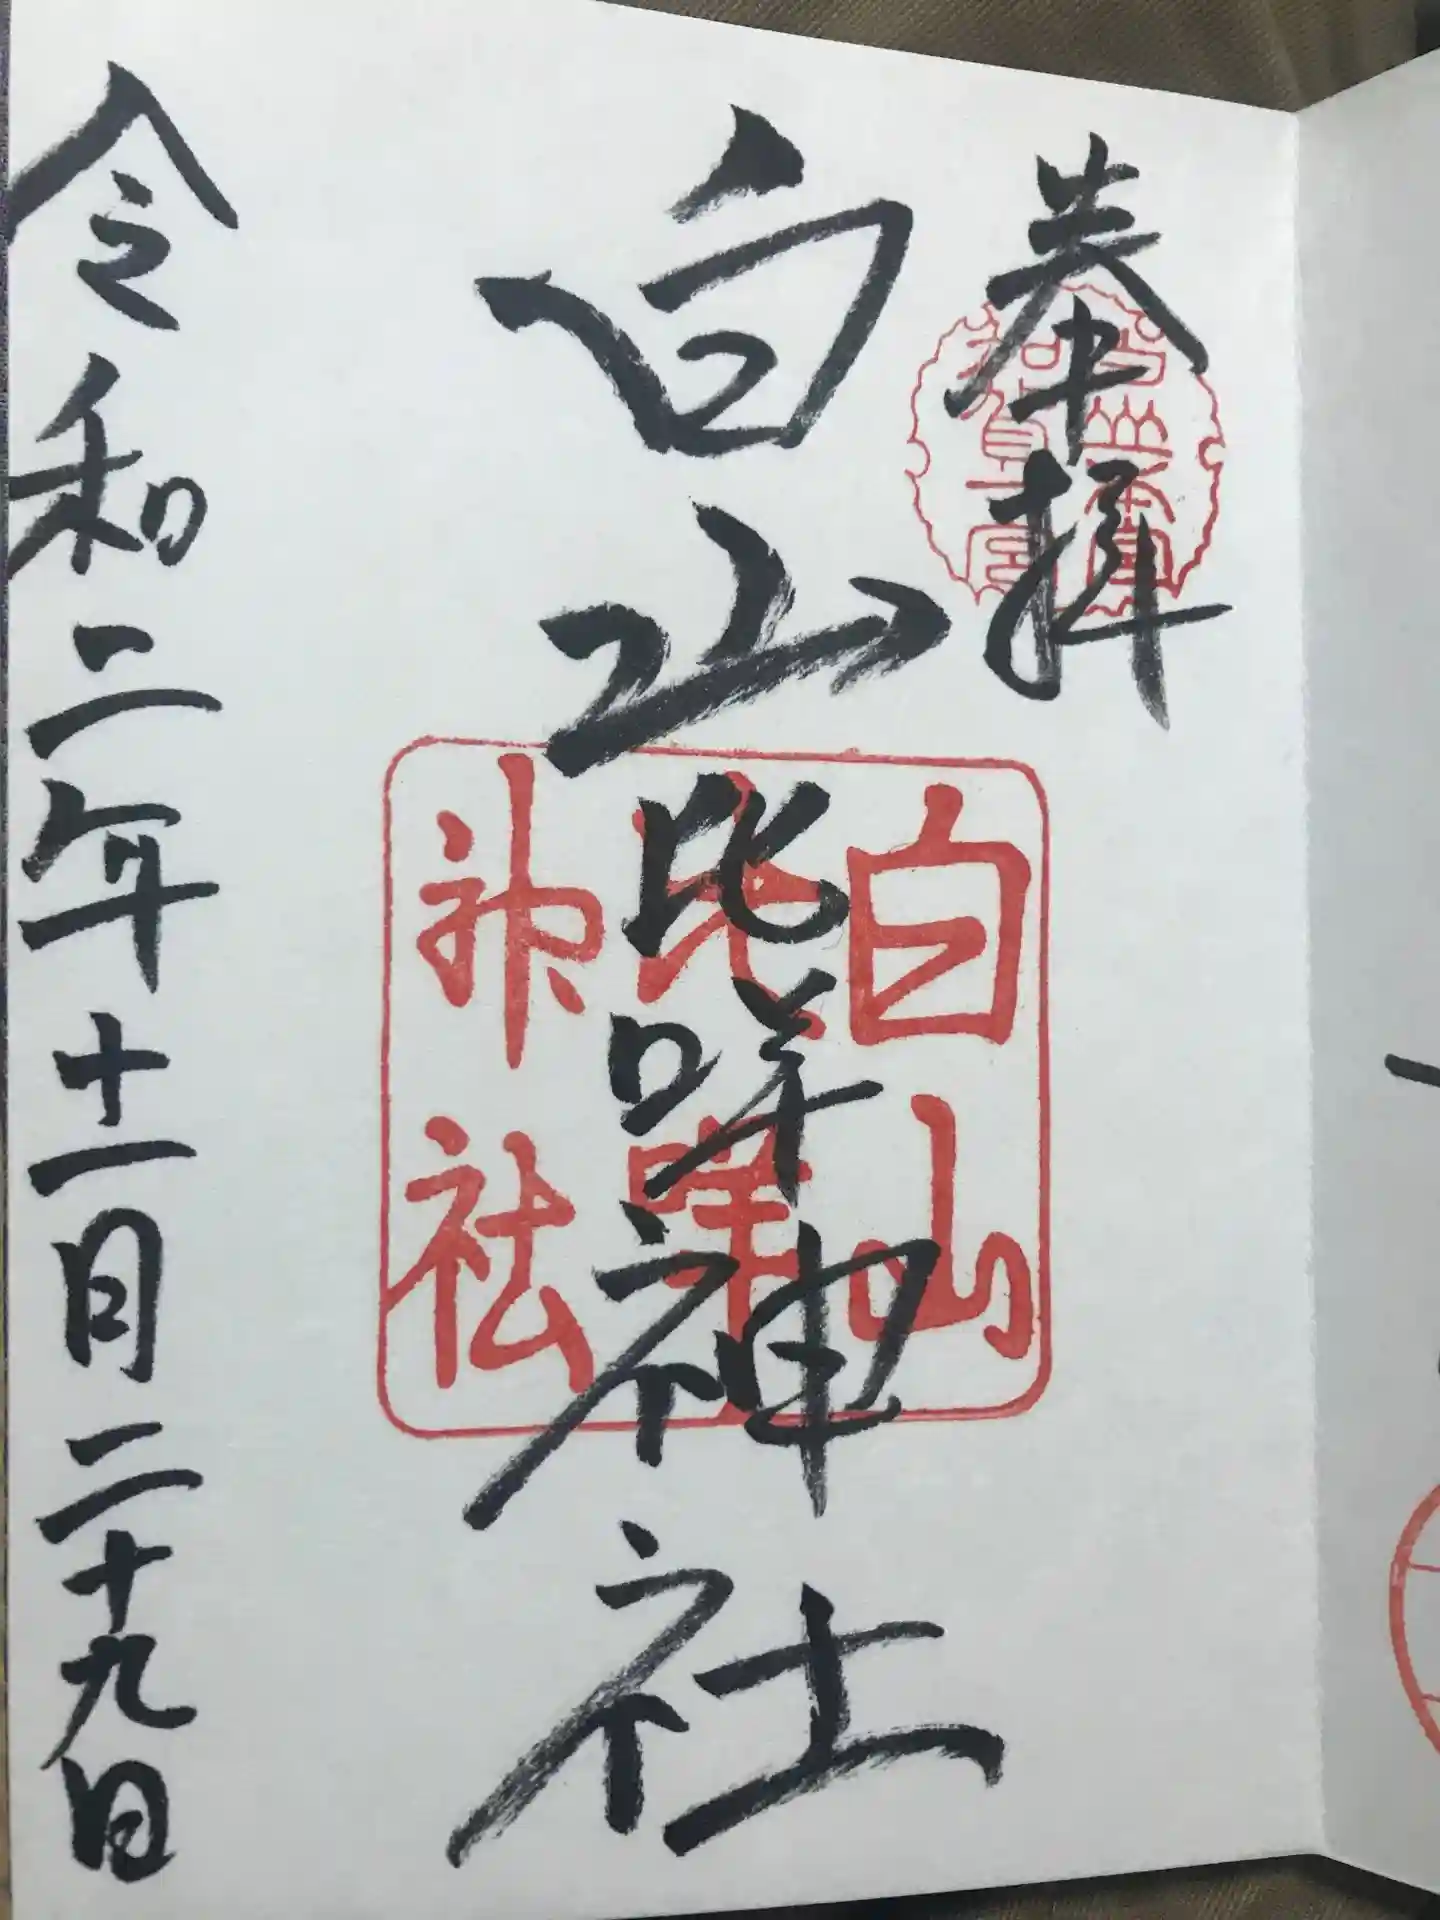 奉拝
白山比咩神社
白山
比咩
神社
令和二年十一月二十九日